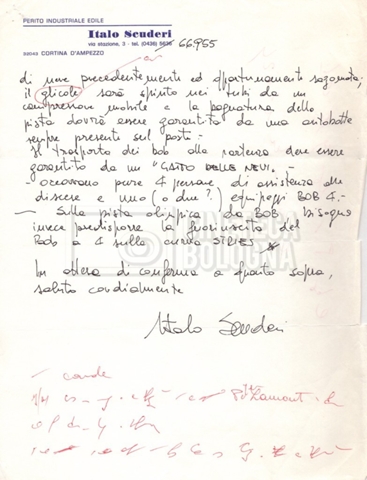 PERITO INDUSTRIALE EDILE
Italo Scuderi
via stazione, 3 - tel. (0436) 5636 66.955
32043 CORTINA D'AMPEZZO
di neve precedentemente ed opportunamente sagomata;
il glicole sarà spinto nei tubi da un
compressore mobile e la bagnatura della
pista dovrà essere garantita da una autobotte
sempre presente sul posto -
Il trasporto dei bob alla partenza deve essere
garantito da un "GATTO DELLE NEVI". -
- occorrono pure 4 persone di assistenza alle
discese e uno (o due?) equipaggi BOB 4. -
- Sulla pista olimpica da BOB bisogna
invece predisporre la fuoriuscita del
Bob a 4 sulla curva
In attesa di conferma a quanto sopra,
saluto cordialmente
Italo Scuderi
CINETECA
BOLOGNA